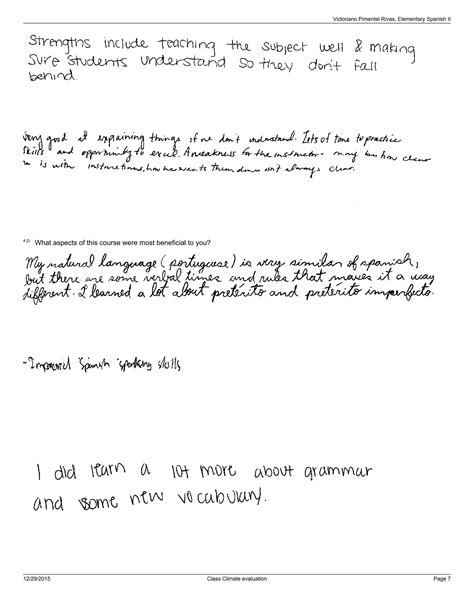 Victoriano Pimentel Rivas, Elementary Spanish II
Strengths include teaching the subject well & making
sure students understand so they don't fall
behind.
Very good at explaining things if we don't understand. Lots of time to practice
skills and opportunity to excel. A weakness for the instructor may be how clear
he is with instructions, how he wants them done isn't always clear.
4.2) What aspects of this course were most beneficial to you?
My natural language (portuguese) is very similar of spanish,
but there are some verbal times and rules that makes it a way
different. I learned a lot about pretérito and pretérito imperfecto.
- Improved Spanish speaking skills
I did learn a lot more about grammar
and some new vocabulary.
12/29/2015 Class Climate evaluation Page 7